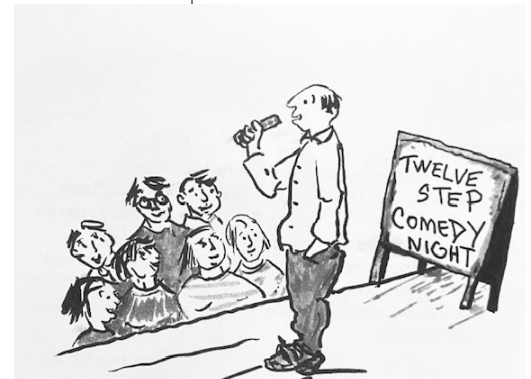 TWELVE
STEP
COMEDY
NIGHT